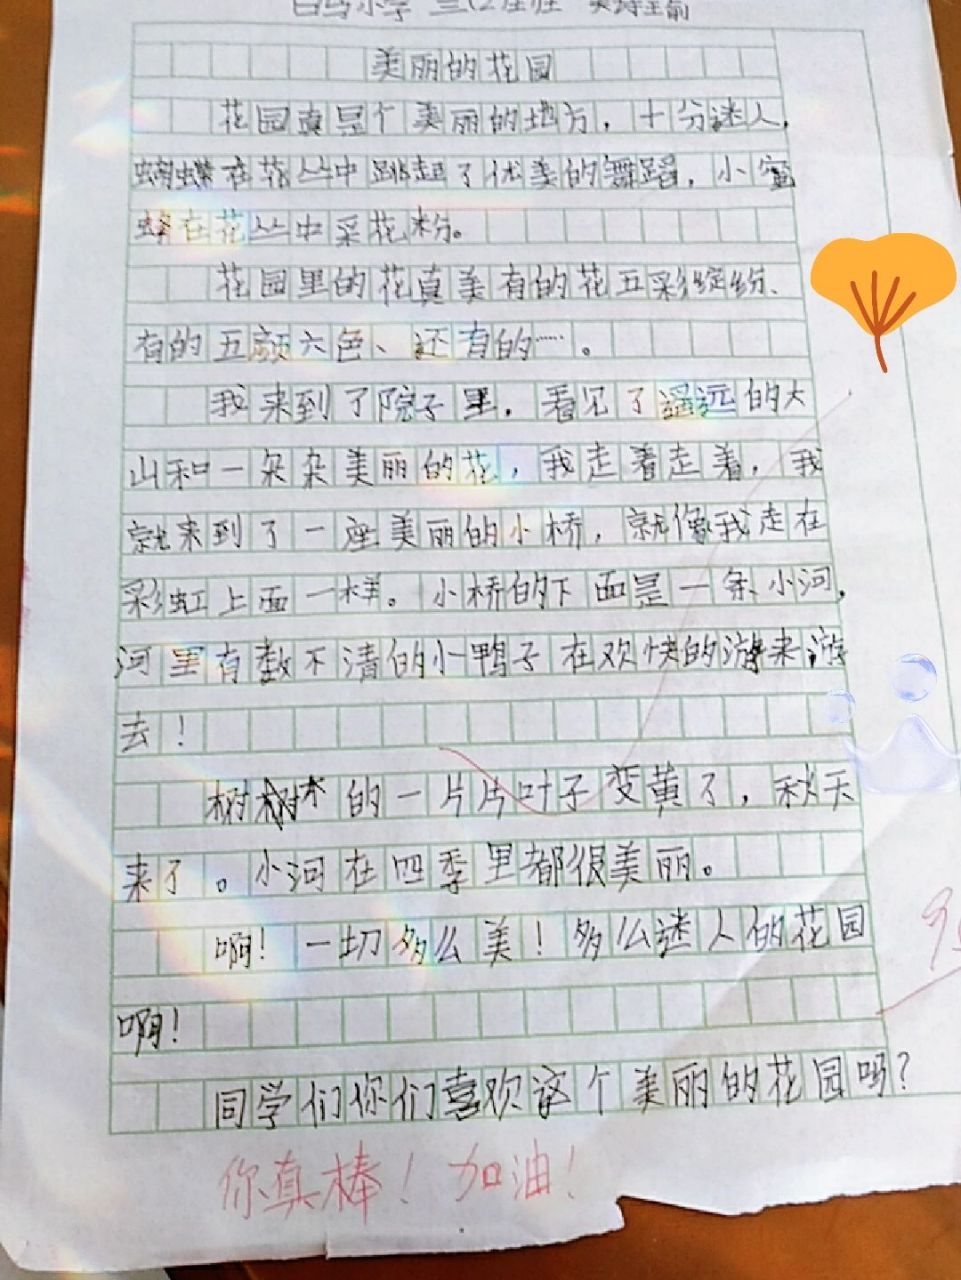 美丽的花园
花园真是个美丽的地方，十分迷人，
蝴蝶在花丛中跳起了优美的舞蹈，小蜜
蜂在花丛中采花粉。
花园里的花真美有的花五彩缤纷、
有的五颜六色、还有的……。
我来到了院子里，看见了遥远的大
山和一朵朵美丽的花，我走着走着，我
就来到了一座美丽的小桥，就像我走在
彩虹上面一样。小桥的下面是一条小河，
河里有数不清的小鸭子在欢快的游来游
去！
树的一片片叶子变黄了，秋天
来了。小河在四季里都很美丽。
啊！一切多么美！多么迷人的花园
啊！
同学们你们喜欢这个美丽的花园吗？
你真棒！加油！